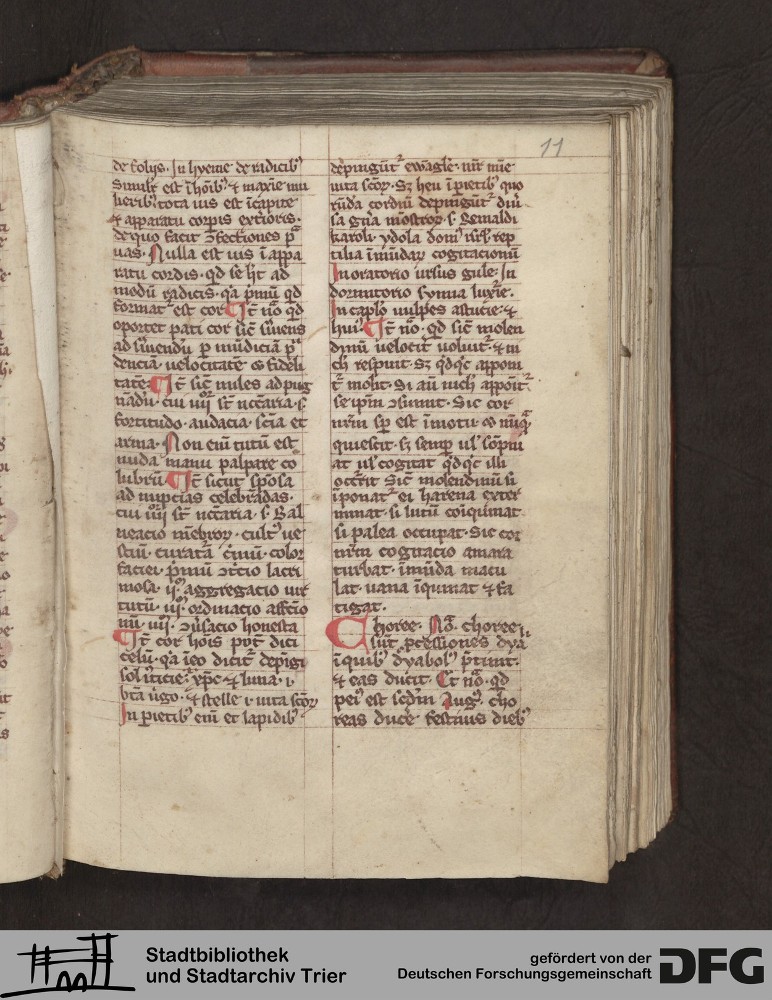 11
de folijs. In hyeme de radicibꝰ
Simil'r est ī hōibꝰ ⁊ maxīe mu
lieribꝰ tota uis est ī capite
⁊ apparatu corpis exterioris.
de quo facit ꝯfectiones
uas. Nulla est uis ī appa
ratu cordis. qd se ht ad
modū radicis. qa pmū qd
format᷑ est cor ¶ Jt̄ nō qd
oportet pati cor
ad
dencia uelocitate fideli
tate. ¶ Jt̄ sic miles ad pug
nādū. cui iiiior st̄ nccāria. s.
fortitudo. audacia. scīa et
arma. Non enī tutū est
nuda manu palpare co
lubrū. ¶ Jt̄ sicut spōsa
ad nupcias celebrādas.
cui iiiior st̄ nccāria. s. Bal
neacio mēbror. cultꝰ ue
stiū. curatā color
faciei. pimū lacri
mosa. ii. aggregacio uir
tutū. iii. ordinacio affctio
nū. iiii. ꝯuersacio honesta
¶ Jt̄ cor hois pot dici
celū. qa ī eo dicit᷑ depīgi
sol iusticie. xpc ⁊ luna. i.
bta uirgo. ⁊ stelle i. uita scōr
In pietibꝰ enī et lapidibꝰ
depingūt᷑ ewāgle.
uita scōr. Sz heu ī pietibꝰ quo
rūdā cordiū depingūt᷑ diū
sa gn̄a mōstror. s. Gemaldi
karoli. ydola rep
tilia īmūdar cogitacionū
In oratorio ursus gule. In
dormitorio symia luxīe.
In caplo uulpes astucie. ⁊
huiꝰ. ¶ Jt̄ nō. qd sic molen
dinū uelocit uoluit᷑. ⁊ ni
ch respuit. Sz qdqc apponi
t᷑ molit. Si aū nich appoit᷑
se ipm ꝯsumit. Sic cor
nrm sp est ī motu. ⁊ nūq
quiescit. sz semp uł sōpni
at uł cogitat qdqc illi
occrit Sic molendinū si
iponat᷑ ei harena exter
minat. si lutū coīquinat.
si palea occupat. Sic cor
nrm cogitacio amara
turbat. īmūda macu
lat. uana īquinat ⁊ fa
tigat.
Choree. Nō. choree
sūt pcessiones dya
ī quibꝰ dyabolꝰ
⁊ eas ducit. Et nō. qd
peiꝰ est scdm Augꝰ. cho
reas duce festiuis diebꝰ
Stadtbibliothek
und Stadtarchiv Trier
gefördert von der
Deutschen Forschungsgemeinschaft
DFG